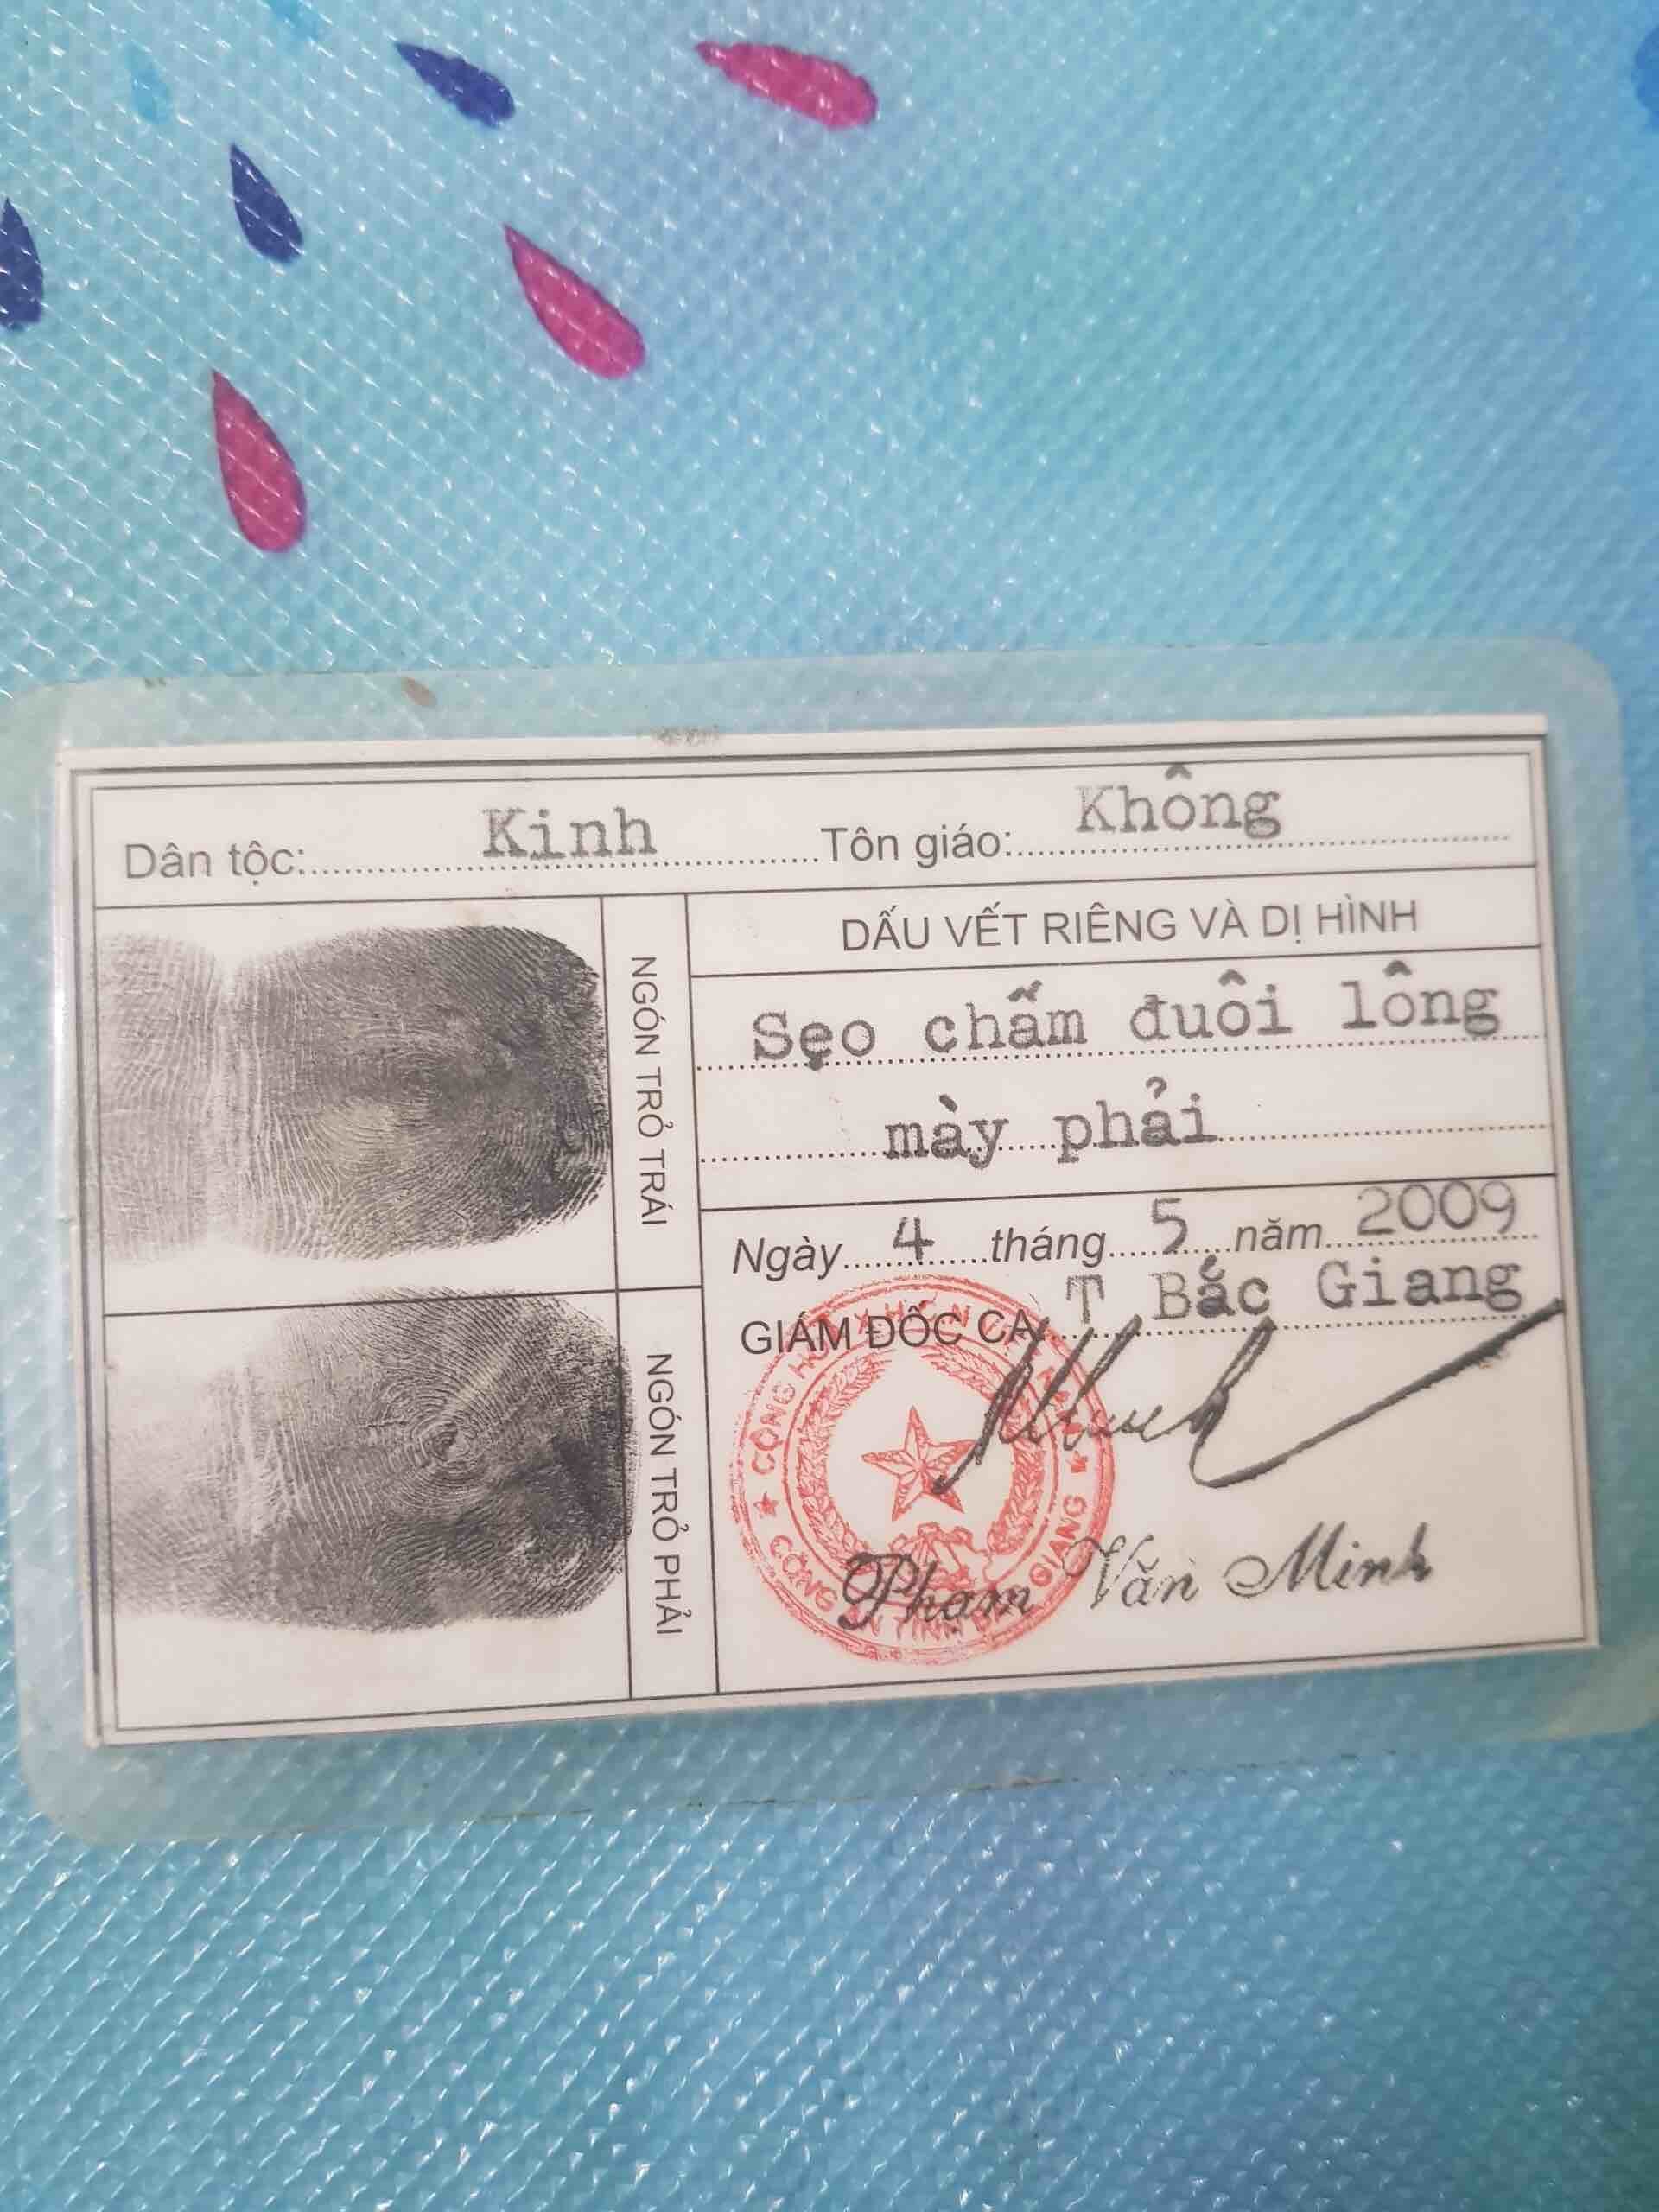 Dân tộc: Kinh Tôn giáo: Không
NGÓN TRỎ TRÁI
NGÓN TRỎ PHẢI
DẤU VẾT RIÊNG VÀ DỊ HÌNH
Sẹo chấm đuôi lông
mày phải
Ngày 4 tháng 5 năm 2009
GIÁM ĐỐC CA T Bắc Giang
Phạm Văn Minh